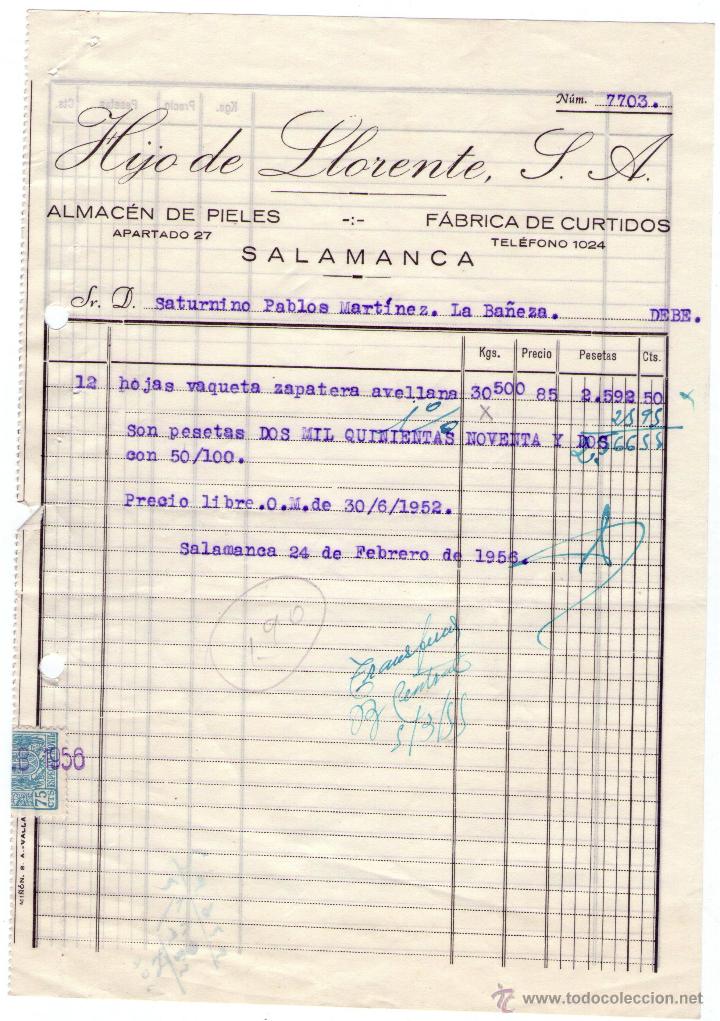 Núm. 7703.
Hijo de Llorente, S. A.
ALMACÉN DE PIELES -:- FÁBRICA DE CURTIDOS
APARTADO 27 TELÉFONO 1024
SALAMANCA
Sr. D. Saturnino Pablos Martínez. La Bañeza. DEBE.
Kgs. Precio Pesetas Cts.
12 hojas vaqueta zapatera avellana 30500 85 2.592 50
X 25 95
Son pesetas DOS MIL QUINIENTAS NOVENTA Y DOS
con 50/100.
Precio libre.O.M.de 30/6/1952.
Salamanca 24 de Febrero de 1956.
190
Central
1956
75 CTS
MIÑÓN, S. A.-VALLA
todocoleccion
www.todocoleccion.net